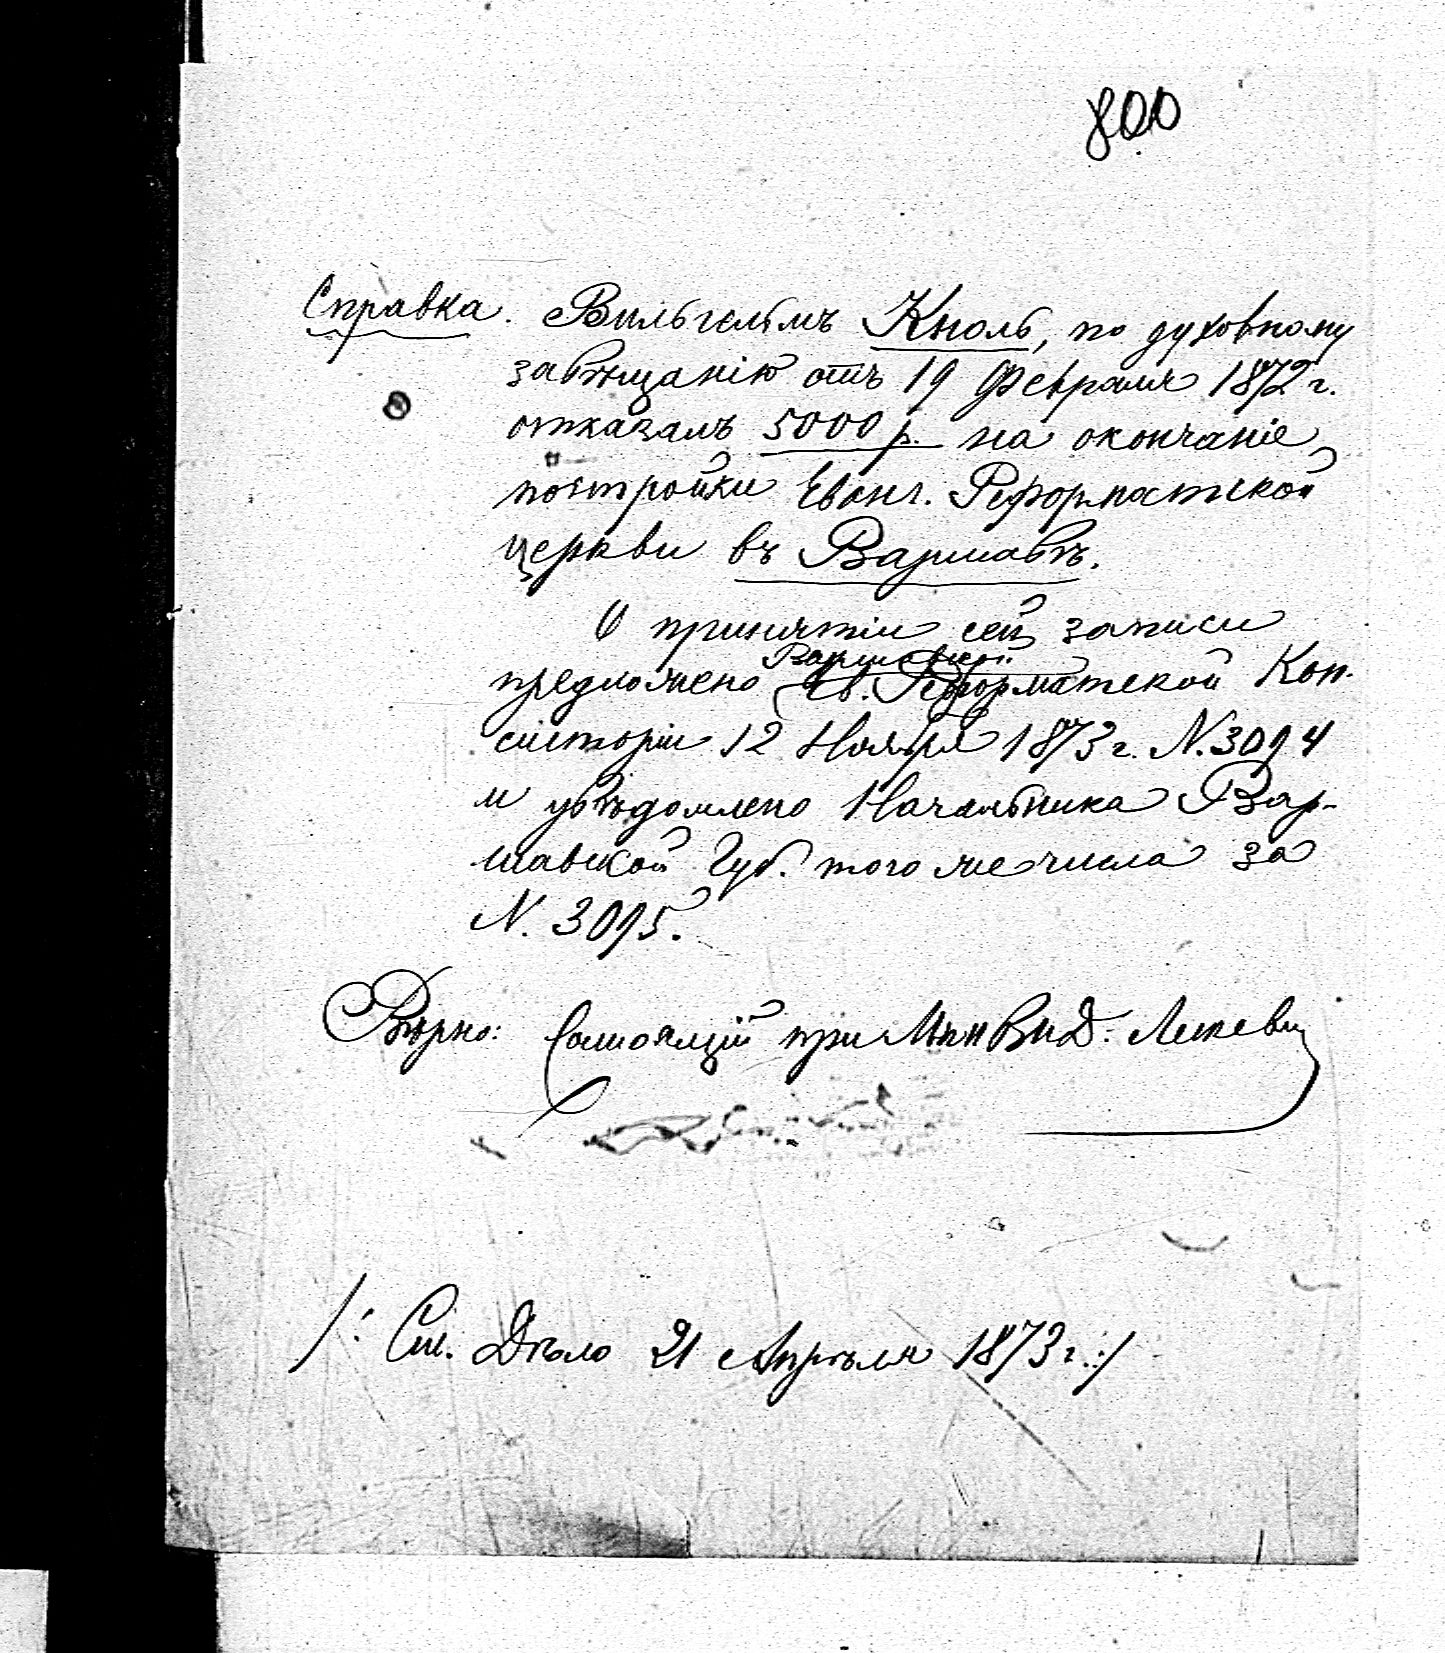 800
Справка. Вильгельмъ Кноль, по духовному
завѣщанію отъ 19 Февраля 1872 г.
отказалъ 5000 р. на окончаніе
постройки Еванг. Реформатской
церкви въ Варшавѣ.
О принятіи сей записи
Варшавской
предложено Ев. Реформатской Кон-
систоріи 12 Ноября 1873 г. N. 3094
и увѣдомлено Начальника Вар-
шавской Губ. того же числа за
N. 3095.
Вѣрно: Состоящій при Мин Вн Д.
/: См. Дѣло 21 Апрѣля 1873 г. :/